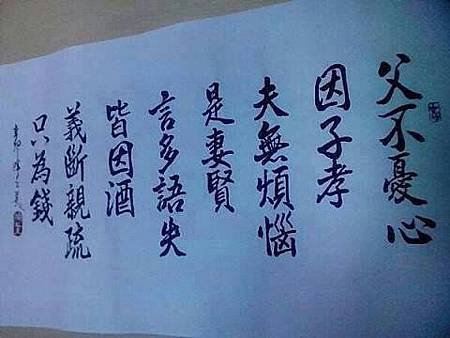 父不憂心
因子孝
夫無煩惱
是妻賢
言多語失
皆因酒
義斷親疏
只為錢